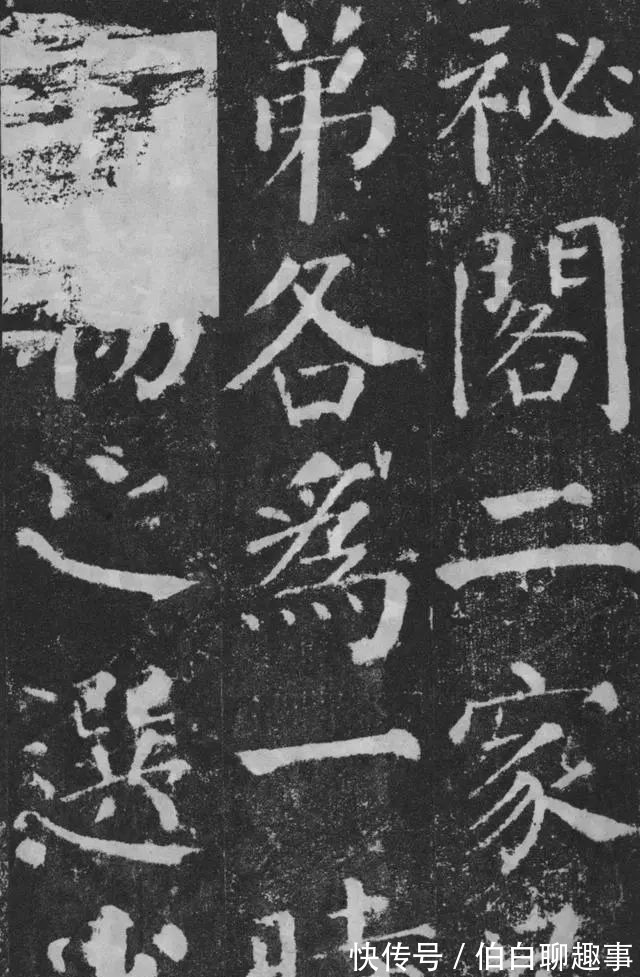 祕閣二家
弟各為一時
物之選少
快传号 / 伯白聊趣事